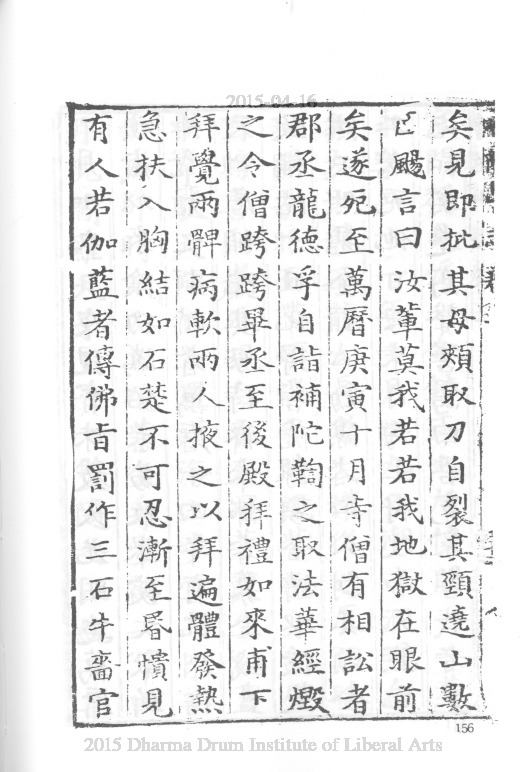 2015-04-16
矣見即批其母頰取刀自裂其頸遶山數
匝颺言曰汝輩莫我若若我地獄在眼前
矣遂死至萬曆庚寅十月寺僧有相訟者
郡丞龍德孚自詣補陀鞫之取法華經燬
之令僧跨跨畢丞至後殿拜禮如來甫下
拜覺兩髀病軟兩人掖之以拜遍體發熱
急扶入胸結如石楚不可忍漸至昬憒見
有人若伽藍者傳佛旨罰作三石牛嗇官
156
2015 Dharma Drum Institute of Liberal Arts